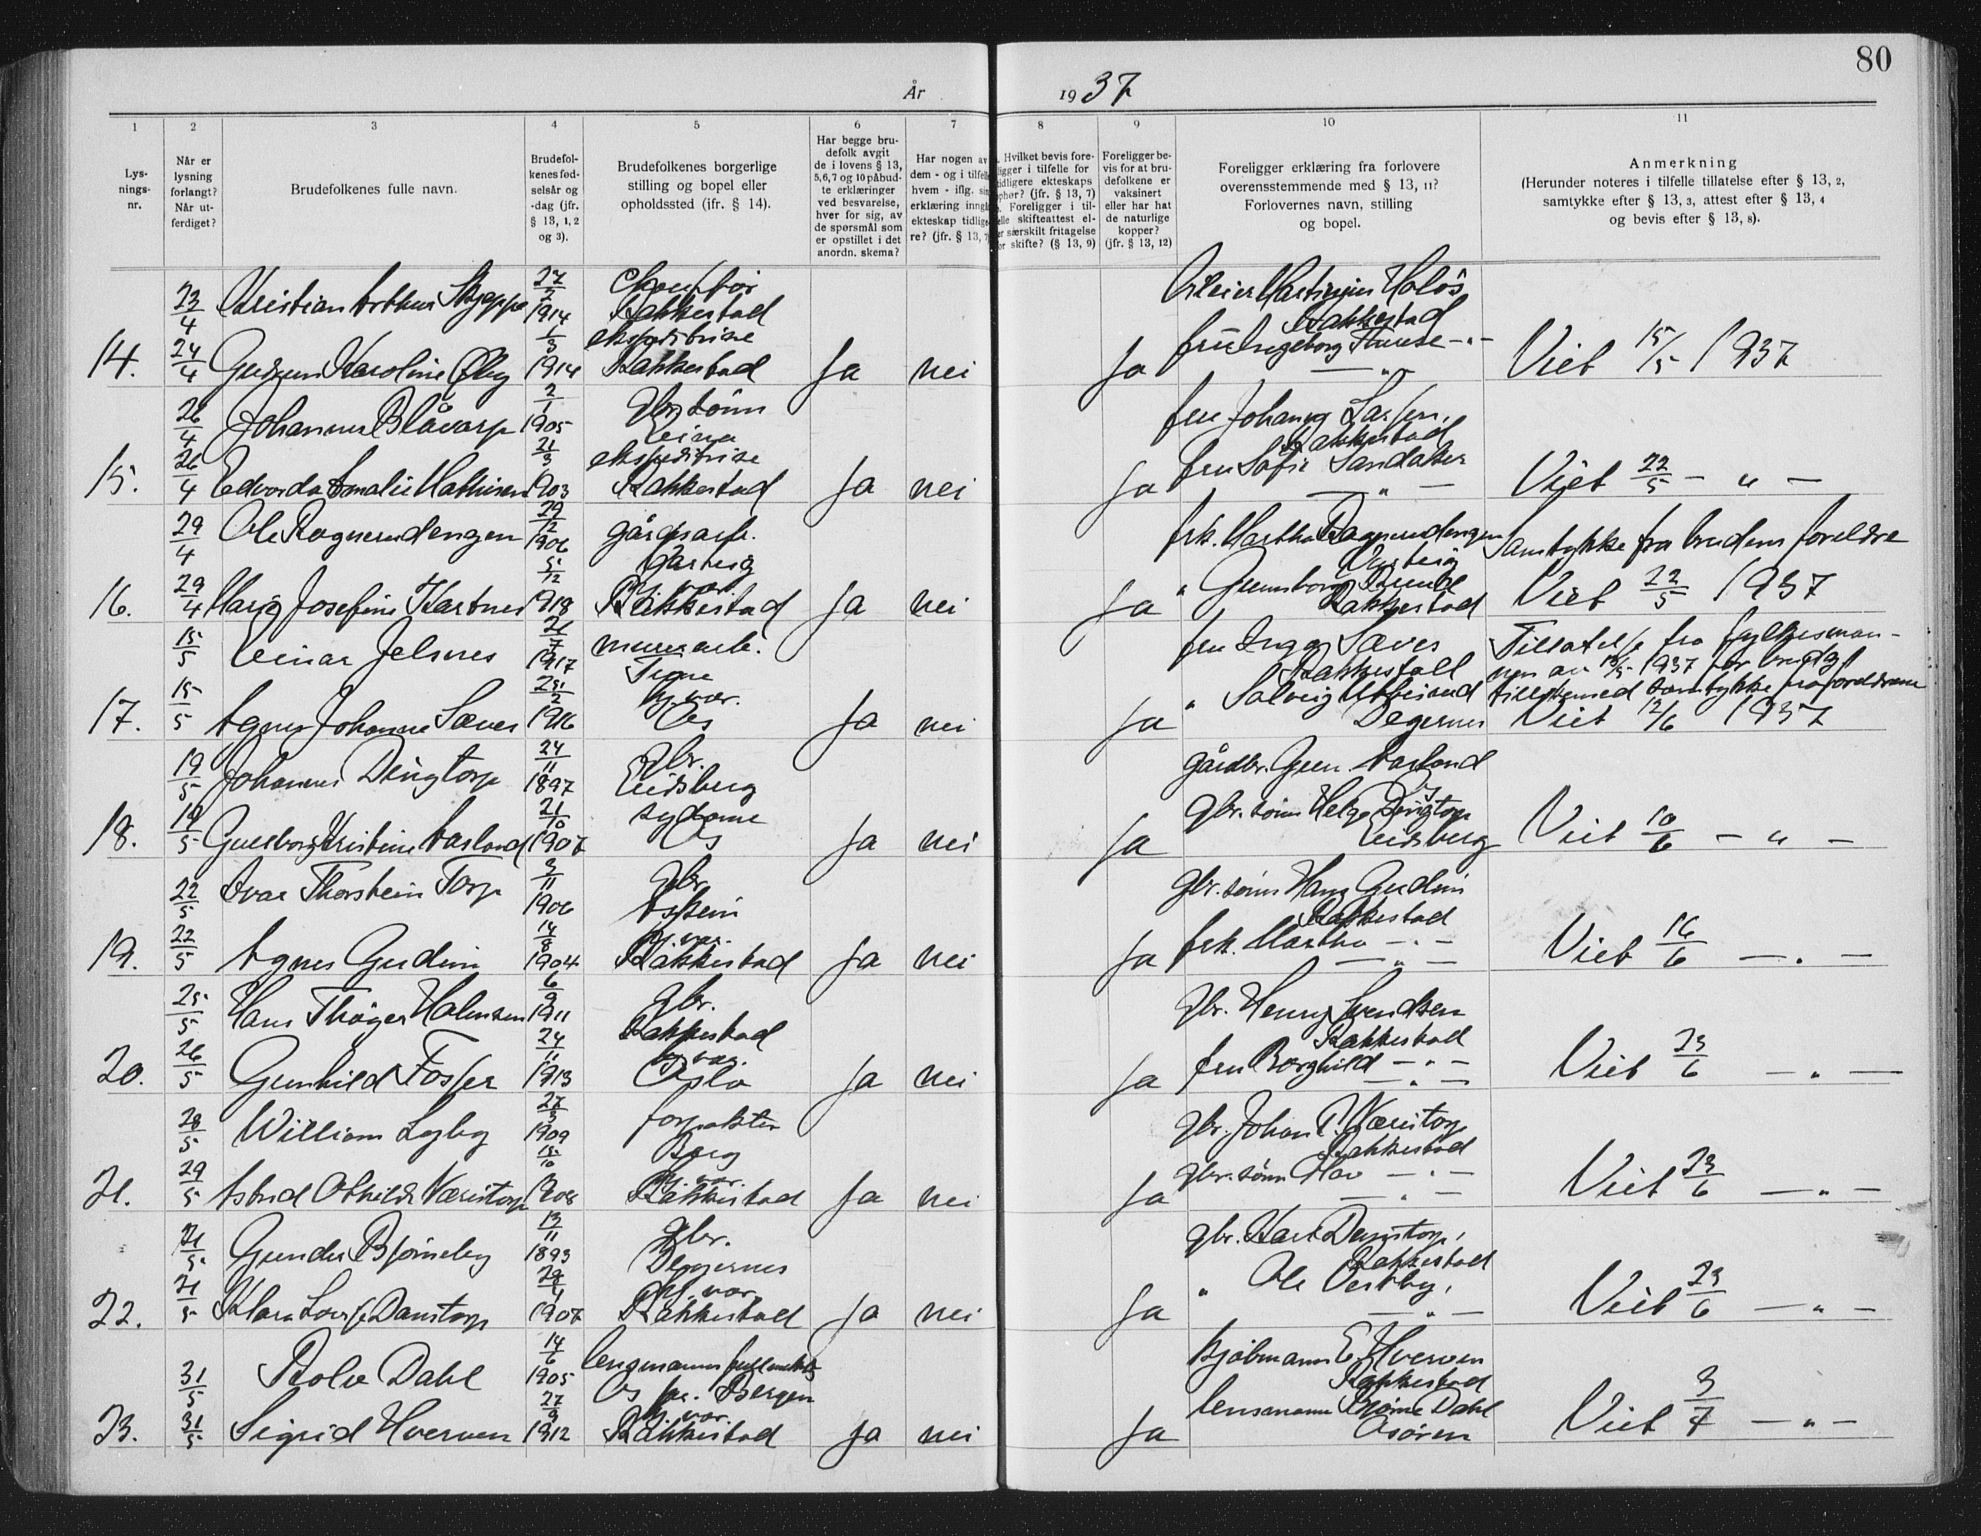 80
År 1937
1 2 3 4 5 6 7 8 9 10 11
Lys-
nings-
nr.
Når er
lysning
forlangt?
Når ut-
ferdiget?
Brudefolkenes fulle navn.
Brudefol-
kenes fød-
selsår og
-dag (jfr.
§ 13, 1, 2
og 3).
Brudefolkenes borgerlige
stilling og bopel eller
opholdssted (ifr. § 14).
Har begge bru-
defolk avgit
de i lovens § 13,
5,6,7 og 10 påbud-
te erklæringer
ved besvarelse,
hver for sig, av
de spørsmål som
er opstillet i det
anordn. skema?
Har nogen av
dem - og i tilfelle
hvem - iflg. sin
erklæring inngå
ekteskap tidlige-
re? (jfr. § 13, 7
Hvilket bevis fore-
ligger i tilfelle for
tidligere ekteskaps
ophør? (jfr. § 13, 7)
Foreligger i til-
elle skifteattest el-
er særskilt fritagelse
for skifte? (§ 13, 9)
Foreligger be-
vis for at bru-
defolkene er
vaksinert
eller har hat
de naturlige
kopper?
(jfr. § 13, 12)
Foreligger erklæring fra forlovere
overensstemmende med § 13, 11?
Forlovernes navn, stilling
og bopel.
Anmerkning
(Herunder noteres i tilfelle tillatelse efter § 13, 2,
samtykke efter § 13, 3, attest efter § 13, 4
og bevis efter § 13, 8).
23/4 Kristian Arthur Skjeppe 27/2 1914 chauffør Rakkestad
14. 24/4 Gudrun Karoline Øby 1/3 1914 ekspeditrise Rakkestad Ja nei Ja fru Ingeborg Viet 15/5 1937
26/4 Johannes Blåvarp 2/1 1905 gbr. sønn Eina fru Johanna Larsen, Rakkestad
15. 26/4 Edvarda Amalie Mathisen 21/3 1903 ekspeditrise Rakkestad Ja nei Ja fru Sofie Sandaker — " — Viet 22/5 — " —
29/4 Ole Ragnvaldengen 29/12 1906 gårdsarb. Varteig frk. Martha Varteig Samtykke fra brudens foreldre
16. 29/4 Josefine Kartnes 5/12 1918 hj. vær. Rakkestad Ja nei Ja " Gunnborg Rakkestad Viet 22/5 1937
15/5 Einar Jelsnes 21/7 1917 murerarb. Tigne fru Inga Sæves Rakkestad Tillatelse fra fylkesman-
nen av 13/5 1937 for brudg.
17. 15/5 Agnes Johanne Sæves 25/2 1916 hj. vær. Os Ja nei Ja " Solveig Degernes tillikemed samtykke fra foreldrene
Viet 12/6 1937
19/5 Johannes Dingtorp 24/11 1897 gbr. Eidsberg gårdbr. Aasland
18. 19/5 Guelborg Kristine Aasland 21/10 1907 sydame Os Ja nei Ja gbr. sønn Helge Dingtorp Eidsberg Viet 10/6 — " —
22/5 Ivar Thorstein Torp 3/11 1906 gbr. Askim gbr. sønn Hans Gudim Rakkestad
19. 22/5 Agnes Gudim 14/8 1904 hj. vær. Rakkestad Ja nei Ja frk. Martha — " — Viet 16/6 — " —
25/5 Hans Thøger Halvorsen 6/9 1911 gbr. Rakkestad gbr. Henry Svendsen Rakkestad
20. 26/5 Gunhild Fosser 24/11 1913 hj. vær. Oslo Ja nei Ja fru Borghild — " — Viet 23/6 — " —
28/5 William Lyby 27/3 1909 forpakter Berg gbr. Johan P. Næristorp Rakkestad
21. 29/5 Astrid Othilde Næristorp 15/10 1908 hj. vær. Rakkestad Ja nei Ja gbr. sønn Olav — " — Viet 23/6 — " —
31/5 Gunder Bjørneby 13/11 1893 gbr. Degernes gbr. Karl Damstorp, Rakkestad
22. 31/5 Klara Lovise Damstorp 29/4 1907 hj. vær. Rakkestad Ja nei Ja " Ole Vestby, — " — Viet 23/6 — " —
31/5 Rolv Dahl 14/6 1905 lensmannsfullmektig Os pr. Bergen kjøbmann E. Hverven Rakkestad
23. 31/5 Sigrid Hverven 27/9 1912 hj. vær. Rakkestad Ja nei Ja lensmann Dahl Osøren Viet 3/7 — " —